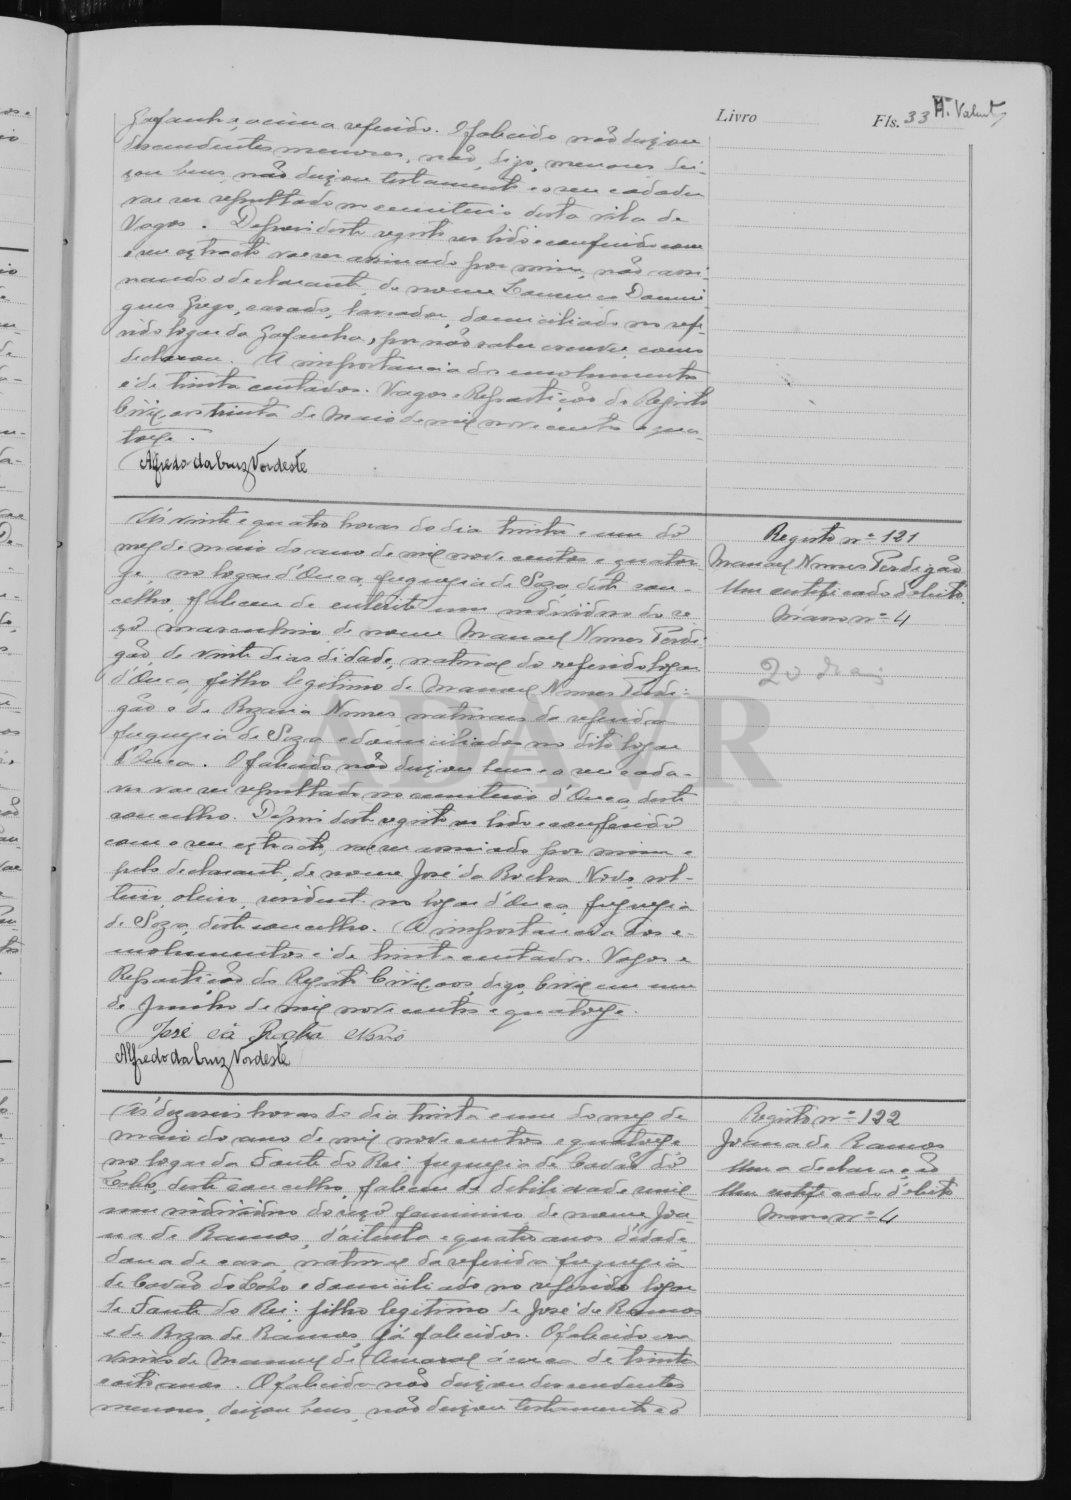 Livro
Fls. 33
Gafanha, acima referido. O falecido não deixou
descendentes menores, não, digo, menores, dei-
xou bens, não deixou testamento e o seu cadaver
vae ser sepultado no cemiterio desta vila de
Vagos. Depois deste registo ser lido e conferido com
o seu extracto vae ser assinado por mim, não assi-
nando o declarante, de nome Lourenço Domin
gues Grego, casado, lavrador, domiciliado no refe-
rido logar da Gafanha, por não saber escrever, como
declarou. A importancia dos emolumentos
é de trinta centavos. Vagos e Repartição do Registo
Civil, aos trinta de Maio de mil nove centos e qua-
torze.
Alfredo da Cruz Nordeste
Registo nº 121
Manuel Nunes Perdigão
Um certificado d'obito
Maço nº 4
20 dias
Ás vinte e quatro horas do dia trinta e um do
mez de maio do ano de mil nove centos e quator-
ze, no logar d'Ouca, freguezia de Soza, deste con-
celho, faleceu de enterite um individuo do se
xo masculino de nome Manuel Nunes Perdi-
gão, de vinte dias d'idade, natural do referido logar
d'Ouca, filho legitimo de Manuel Nunes Perdi-
gão e de Rozaria Nunes, naturaes da referida
freguezia de Soza e domiciliados no dito logar
d'Ouca. O falecido não deixou bens e o seu cada-
ver vae ser sepultado no cemiterio d'Ouca, deste
concelho. Depois deste registo ser lido e conferido
com o seu extracto, vae ser assinado por mim e
pelo declarante, de nome José da Rocha Novo, sol-
teiro, oleiro, residente no logar d'Ouca, freguezia
de Soza, deste concelho. A importancia dos e-
molumentos é de trinta centavos. Vagos e
Repartição do Registo Civil, aos, digo, Civil em um
de Junho de mil nove centos e quatorze.
José da Rocha Novo
Alfredo da Cruz Nordeste
Registo nº 122
Joana de Ramos
Uma declaração
Um certificado d'obito
Maço nº 4
Ás dezaseis horas do dia trinta e um do mez de
maio do ano de mil nove centos e quatorze
no logar da Fonte do Rei, freguezia de Covão do
Lobo, deste concelho, faleceu de debilidade senil
um individuo do sexo femenino de nome Joa-
na de Ramos, d'oitenta e quatro anos d'idade,
dona de casa, natural da referida freguezia
de Covão do Lobo e domiciliado no referido logar
da Fonte do Rei, filho legitimo de José de Ramos
e de Roza de Ramos, já falecidos. O falecido era
viuvo de Manuel de Amaral ácerca de trinta
e oito anos. O falecido não deixou descendentes
menores, deixou bens, não deixou testamento e o
ADAVR